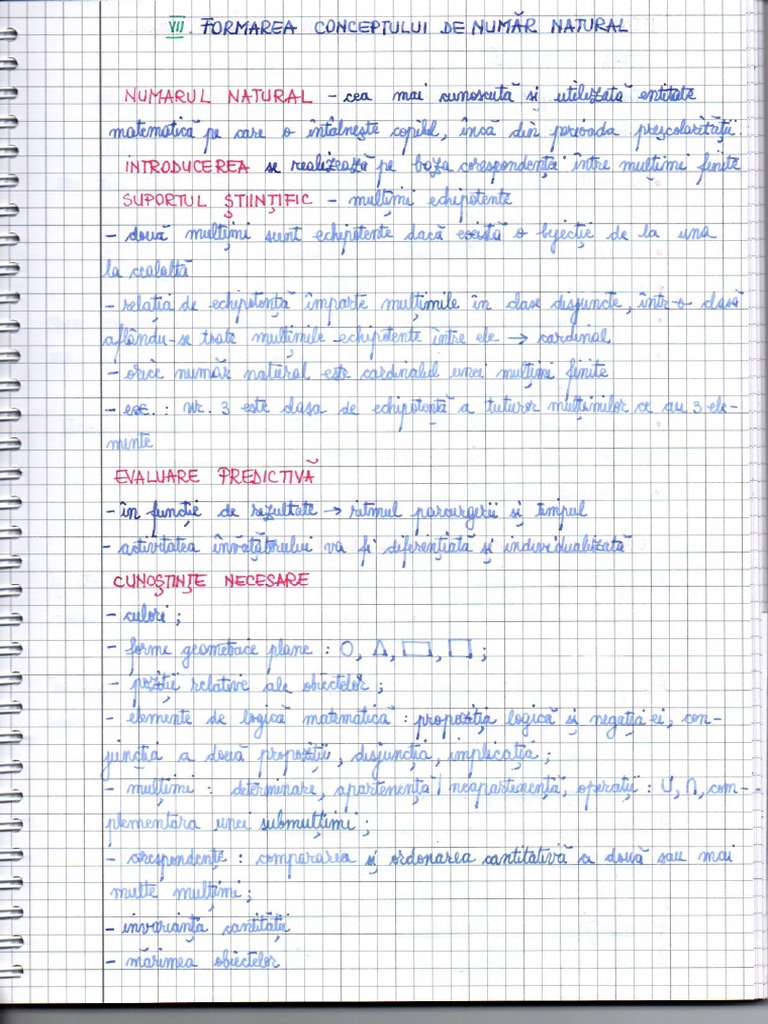 VII. FORMAREA CONCEPTULUI DE NUMĂR NATURAL
NUMARUL NATURAL - cea mai cunoscută și utilizată entitate
matematică pe care o întâlnește copilul, încă din perioada preșcolarității.
INTRODUCEREA se realizează pe baza corespondenței între mulțimi finite
SUPORTUL ȘTIINȚIFIC - mulțimi echipotente
- două mulțimi sunt echipotente dacă există o bijecție de la una
la cealaltă
- relația de echipotență împarte mulțimile în clase disjuncte, într-o clasă
aflându-se toate mulțimile echipotente între ele → cardinal
- orice număr natural este cardinalul unei mulțimi finite
- ex. : nr. 3 este clasa de echipotență a tuturor mulțimilor ce au 3 ele-
mente
EVALUARE PREDICTIVĂ
- în funcție de rezultate → ritmul parcurgerii și timpul
- activitatea învățătorului va fi diferențiată și individualizată
CUNOȘTINȚE NECESARE
- culori ;
- forme geometrice plane : ○, △, ▭, □ ;
- poziții relative ale obiectelor ;
- elemente de logică matematică : propoziția logică și negația ei, con-
juncția a două propoziții, disjuncția, implicația ;
- mulțimi : determinare, apartenență / neapartenență, operații : ∪, ∩, com-
plementara unei submulțimi ;
- corespondențe : compararea și ordonarea cantitativă a două sau mai
multe mulțimi ;
- invarianța cantității
- mărimea obiectelor